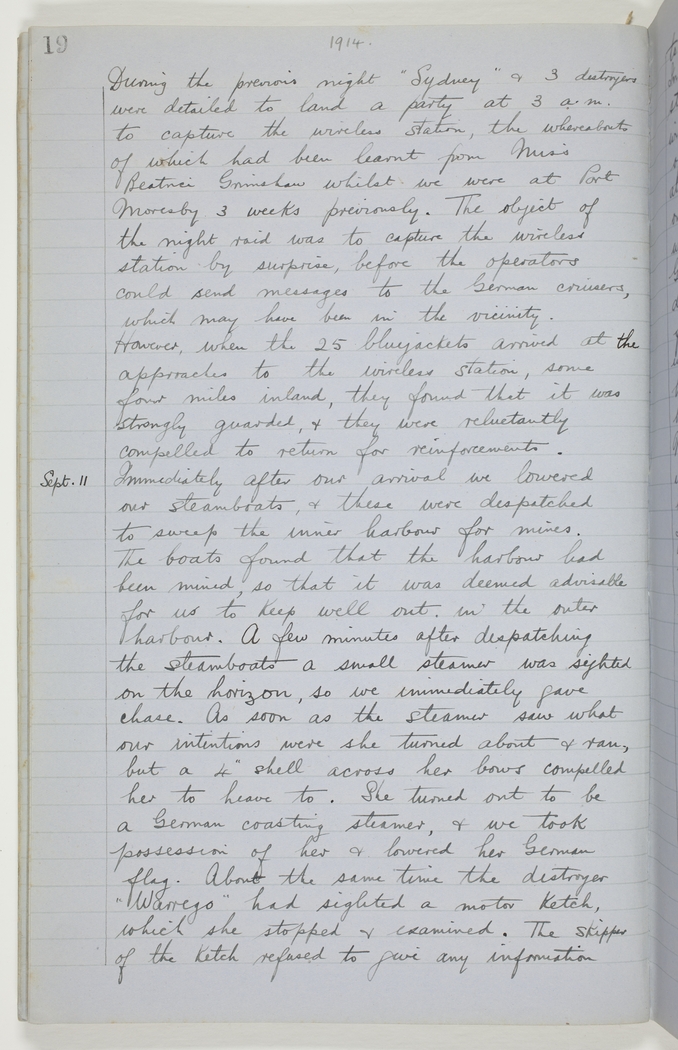 19
1914.
During the previous night "Sydney" & 3 destroyers
were detailed to land a party at 3 a.m.
to capture the wireless station, the whereabouts
of which had been learnt from Miss
Beatrice Grimshaw whilst we were at Port
Moresby 3 weeks previously. The object of
the night raid was to capture the wireless
station by surprise, before the operators
could send messages to the German cruisers,
which may have been in the vicinity.
However, when the 25 bluejackets arrived at the
approaches to the wireless station, some
four miles inland, they found that it was
strongly guarded, & they were reluctantly
compelled to return for reinforcements.
Sept. 11 Immediately after our arrival we lowered
our steamboats, & these were despatched
to sweep the inner harbour for mines.
The boats found that the harbour had
been mined, so that it was deemed advisable
for us to keep well out in the outer
harbour. A few minutes after despatching
the steamboats a small steamer was sighted
on the horizon, so we immediately gave
chase. As soon as the steamer saw what
our intentions were she turned about & ran,
but a 4" shell across her bows compelled
her to heave to. She turned out to be
a German coasting steamer, & we took
possession of her & lowered her German
flag. About the same time the destroyer
"Warrego" had sighted a motor ketch,
which she stopped & examined. The skipper
of the ketch refused to give any information